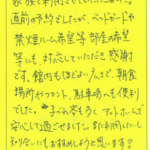 家族で利用させていただきました。
直前の予約でしたが、ベッドガードや
禁煙ルーム希望等 部屋の希望
等にも 対応していただき 感謝
です。館内もほどよい広さで、朝食
場所やフロント、駐車場へも便利
でした。子どれ客もうく アットホームで
安心して過ごせました。また利用したいし
知り合いにもおすすめしようと思います!